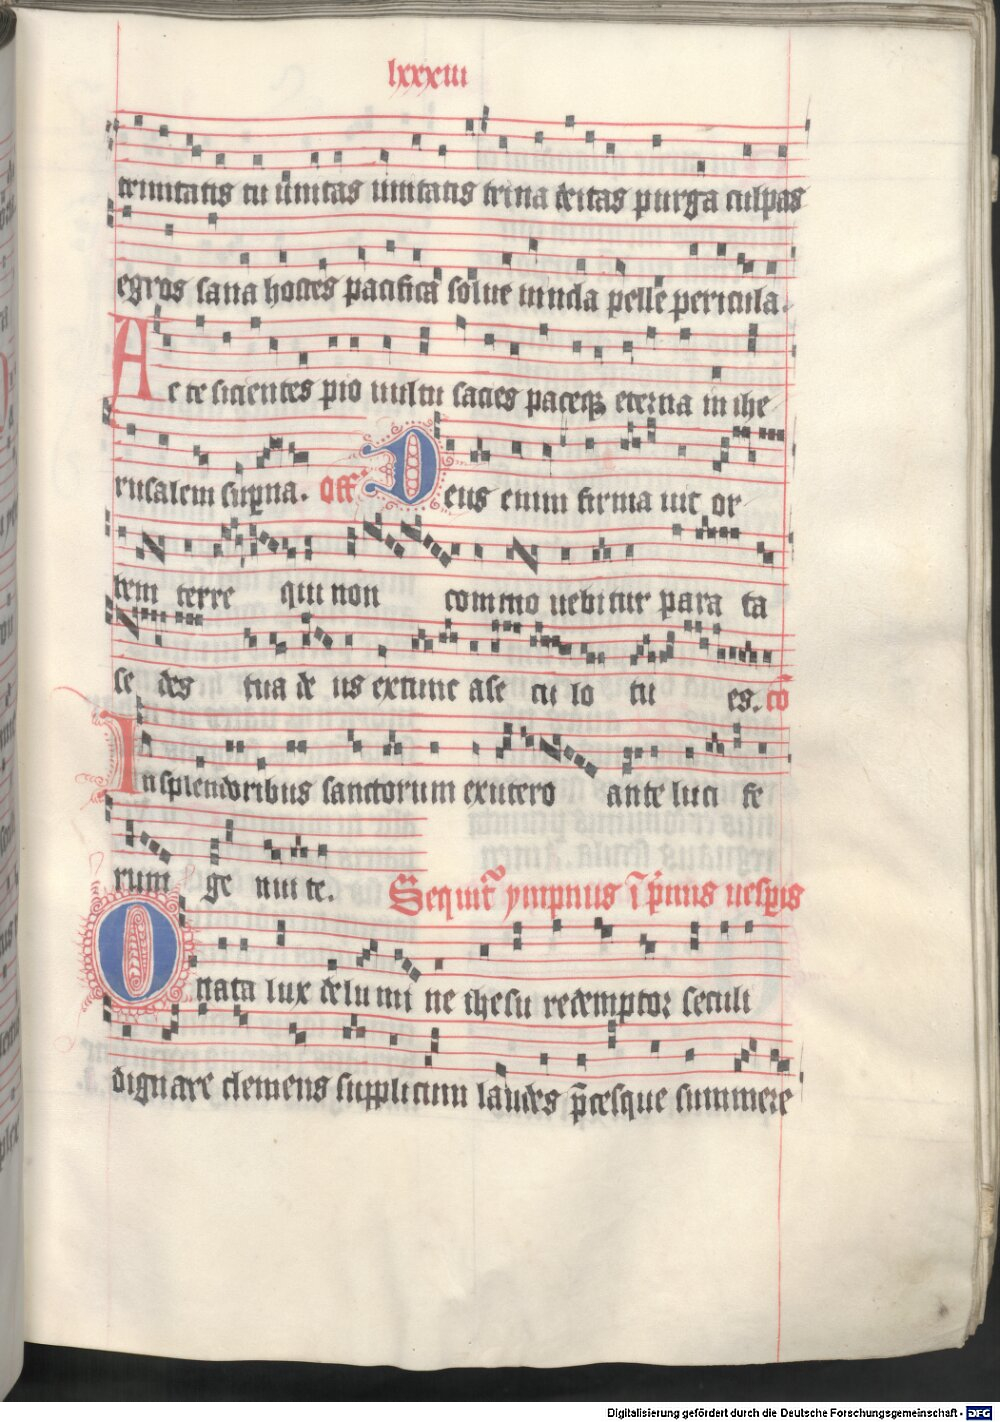 lxxxiii
trinitatis tu unitas unitatis trina deitas purga culpas
egros sana hostes pacifica solue uincla pelle pericula.
Ac te sicientes pio uultu sacies paceq3 eterna in ihe
rusalem sup̲na. Off. Deus enim firma uit or
bem terre qui non commo uebitur para ta
se des tua de us extunc a se cu lo tu es. cō
In splendoribus sanctorum exutero ante luci fe
rum ge nui te. Sequit̄ ympnus ī p̄mis uesp̲is
O nata lux de lu mi ne ihesu redemptor seculi
dignare clemens supplicum laudes p̄cesque summere
Digitalisierung gefördert durch die Deutsche Forschungsgemeinschaft - DFG